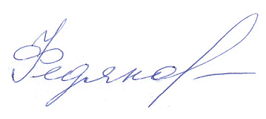 Федяков